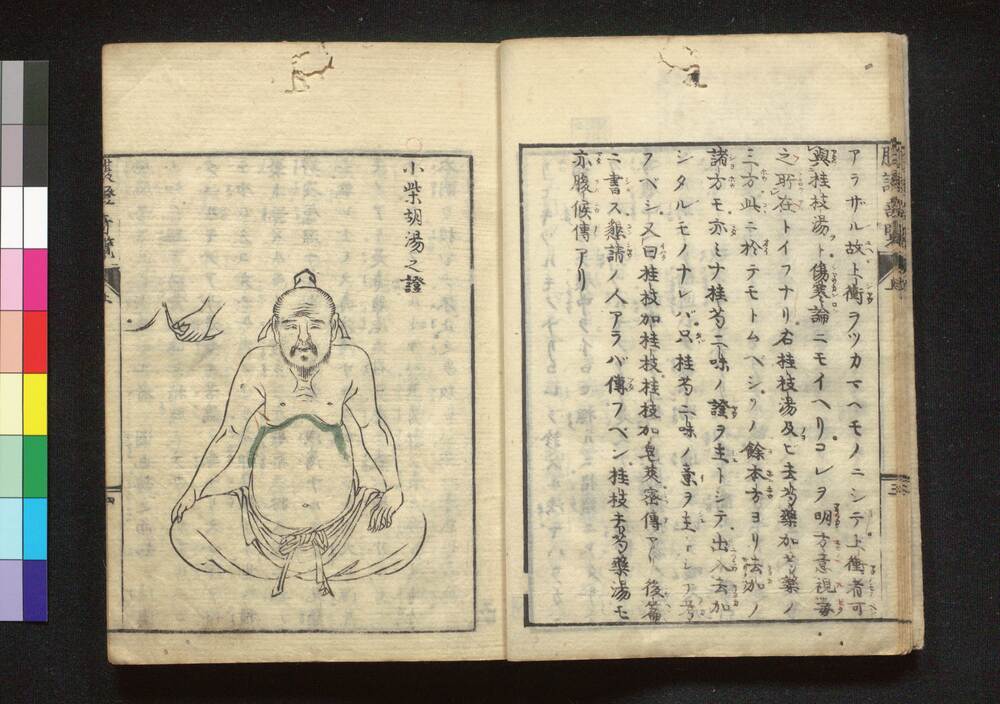 アラザル故上衝ヲツカマヘモノニシテ上衝者可
與桂枝湯ト傷寒論ニモイヘリコレヲ明方意視毒
之所在トイフナリ右桂枝湯及ヒ去芍藥加芍藥ノ
三方此ニ於テモトムベシソノ餘本方ヨリ去加ノ
諸方モ亦ミナ桂芍二味ノ證ヲ主トシテ出入去加
シタルモノナレバ只桂芍二味ノ意ヲ主トシ
フベシ又曰桂枝加桂枝桂枝加皂莢密傳アリ後篇
ニ書ス懇請ノ人アラバ傳フベシ桂枝去芍藥湯モ
亦腹候傳アリ
三
小柴胡湯之證
腹證奇覽
四